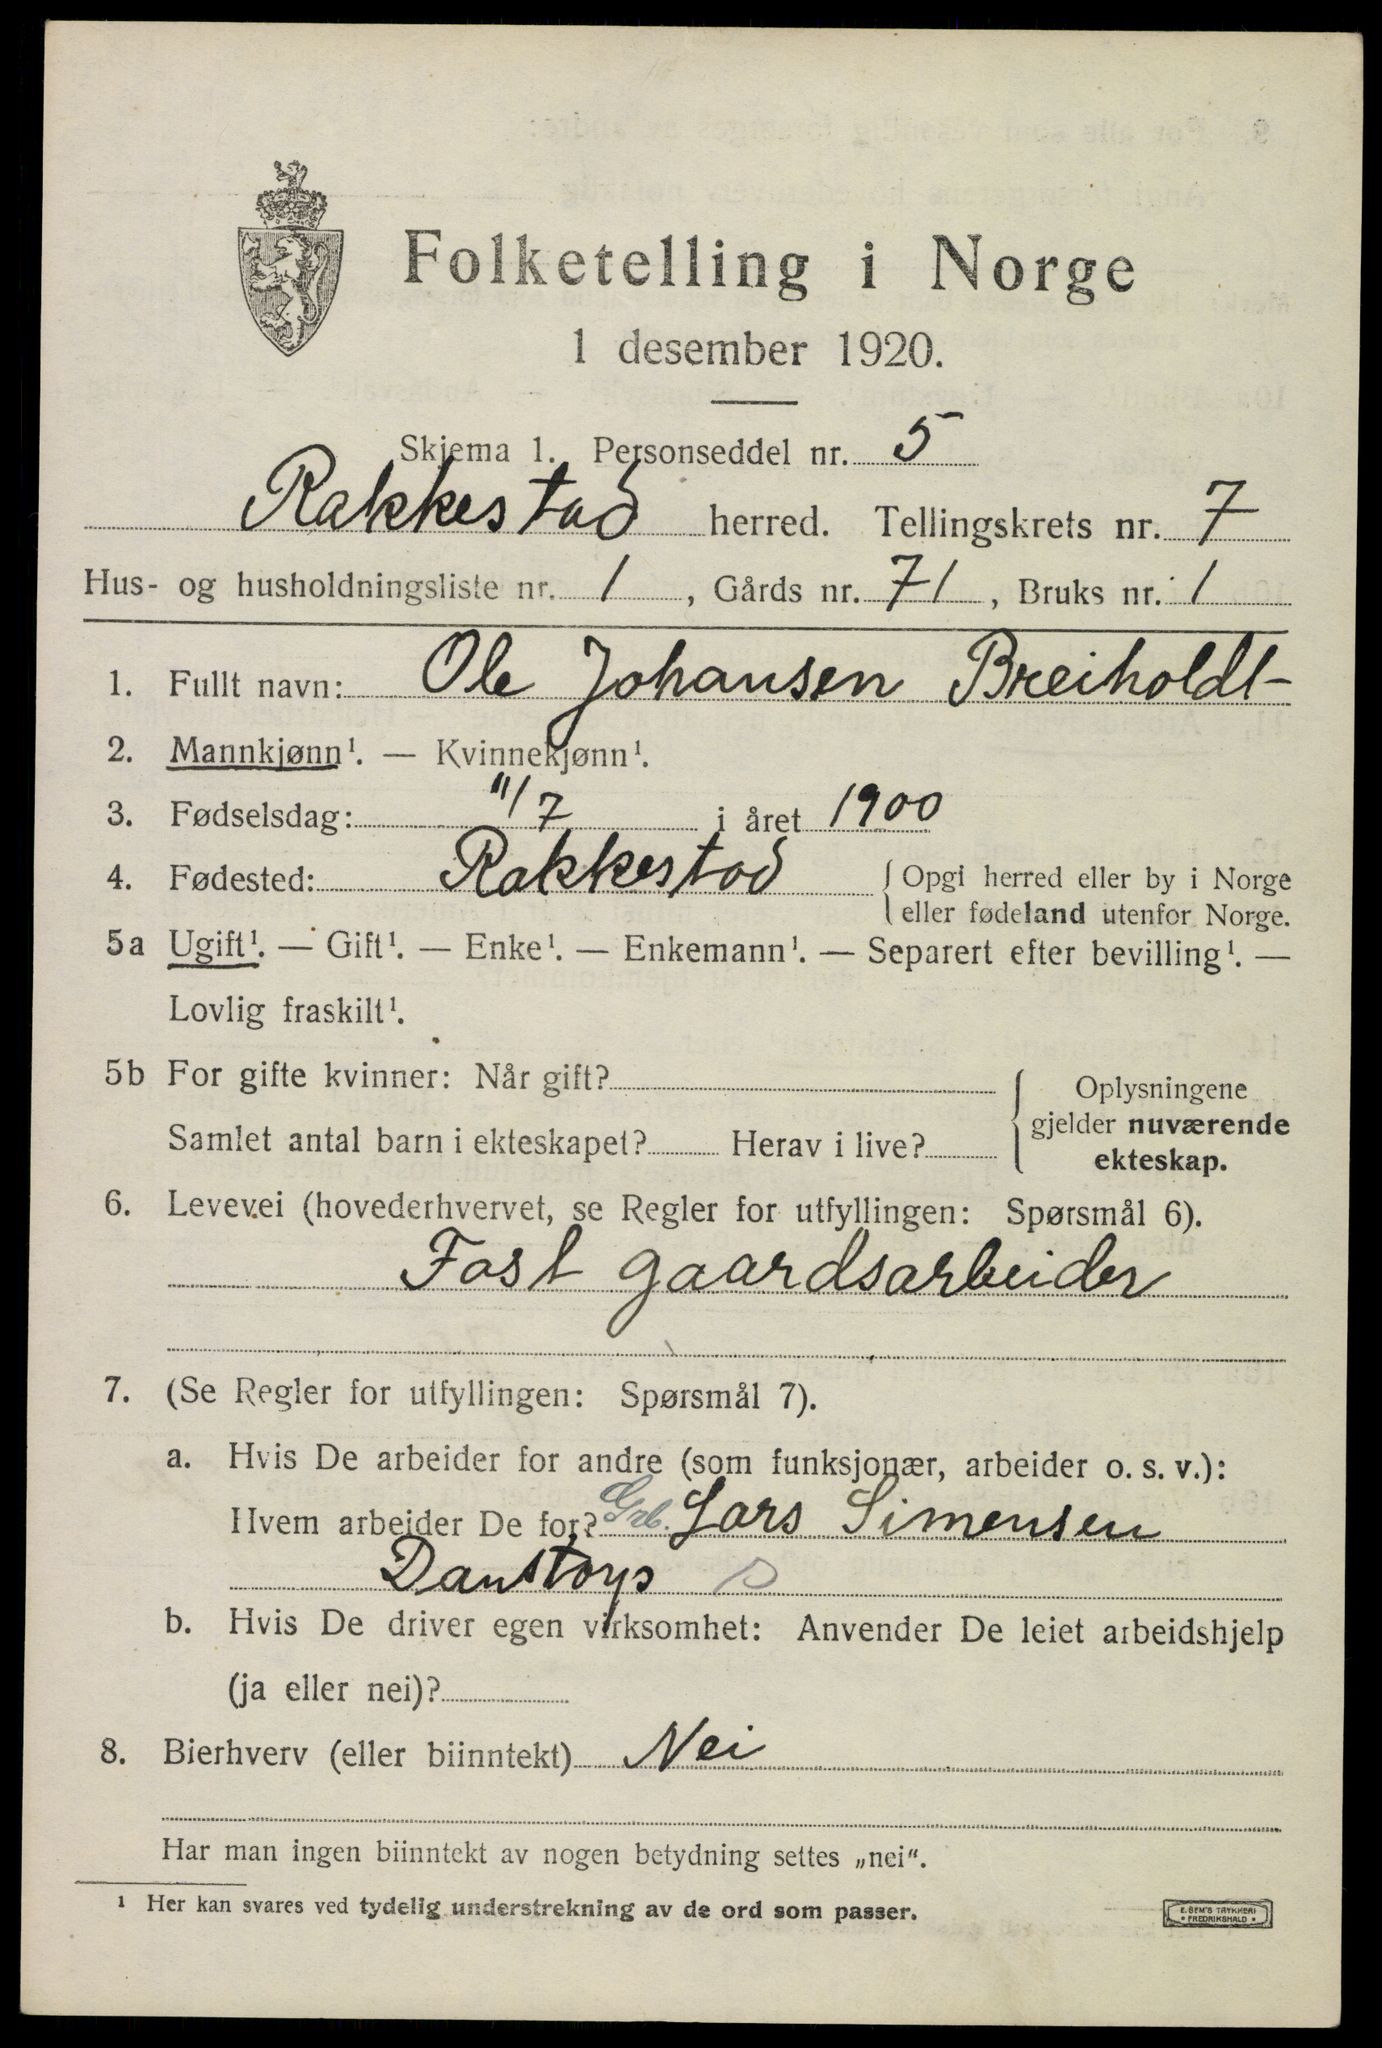 Folketelling i Norge
1 desember 1920.
Skjema 1. Personseddel nr. 5
Rakkestad herred. Tellingskrets nr. 7
Hus- og husholdningsliste nr. 1, Gårds nr. 71, Bruks nr. 1
1. Fullt navn: Ole Johansen Breiholdt
2. Mannkjønn¹. — Kvinnekjønn¹.
3. Fødselsdag: 11/7 i året 1900
4. Fødested: Rakkestad { Opgi herred eller by i Norge
eller fødeland utenfor Norge.
5a Ugift¹. — Gift¹. — Enke¹. — Enkemann¹. — Separert efter bevilling¹. —
Lovlig fraskilt¹.
5b For gifte kvinner: Når gift?
Samlet antal barn i ekteskapet? Herav i live?
{ Oplysningene
gjelder nuværende
ekteskap.
6. Levevei (hovederhvervet, se Regler for utfyllingen: Spørsmål 6).
Fast gaardsarbeider
7. (Se Regler for utfyllingen: Spørsmål 7).
a. Hvis De arbeider for andre (som funksjonær, arbeider o. s. v.):
Hvem arbeider De for? Grb. Lars Simensen
Danstorp
b. Hvis De driver egen virksomhet: Anvender De leiet arbeidshjelp
(ja eller nei)?
8. Bierhverv (eller biinntekt) Nei
Har man ingen biinntekt av nogen betydning settes „nei“.
¹ Her kan svares ved tydelig understrekning av de ord som passer.
E. SEM'S TRYKKERI
* FREDRIKSHALD *